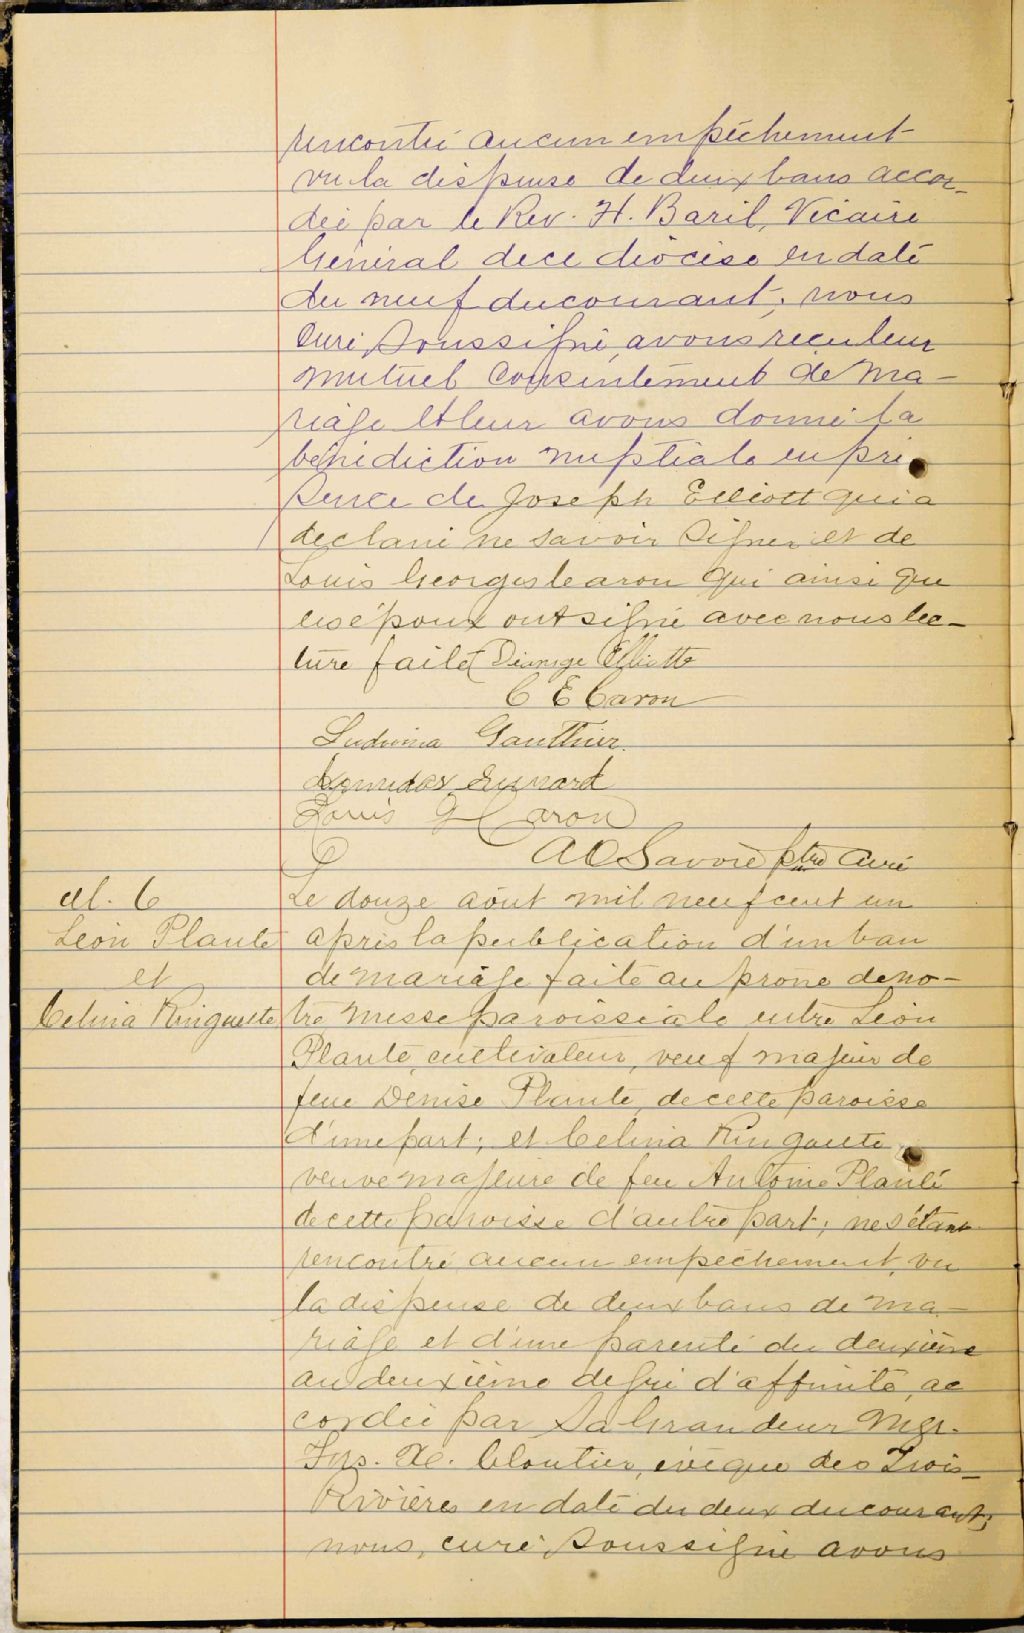 rencontré aucun empêchement
vu la dispense de deux bans accor-
dée par le Rev. H. Baril, Vicaire
Général de ce diocèse en date
du neuf du courant; nous
Curé, Soussigné, avons reçu leur
mutuel consentement de ma-
riage et leur avons donné la
bénédiction nuptiale en pré
sence de Joseph Elliott qui a
déclaré ne savoir signer et de
Louis Georges Caron qui ainsi que
les époux ont signé avec nous lec-
ture faite Elliott
C E Caron
Ludivina Gauthier
Louis G Caron
A O Savoie ptre Curé
M. 6
Léon Plante
et
Celina Ringuette
Le douze août mil neuf cent un
après la publication d'un ban
de mariage faite au prône de no-
tre messe paroissiale entre Léon
Plante, cultivateur, veuf majeur de
feue Denise Plante, de cette paroisse
d'une part; et Celina Ringuette
veuve majeure de feu Antoine Plante
de cette paroisse d'autre part; ne s'étant
rencontré aucun empêchement, vu
la dispense de deux bans de ma-
riage et d'une parenté du deuxième
au deuxième degré d'affinité, ac
cordée par Sa Grandeur Mgr.
Frs. X. Cloutier, évêque des Trois-
Rivières en date du deux du courant;
nous, curé Soussigné avons